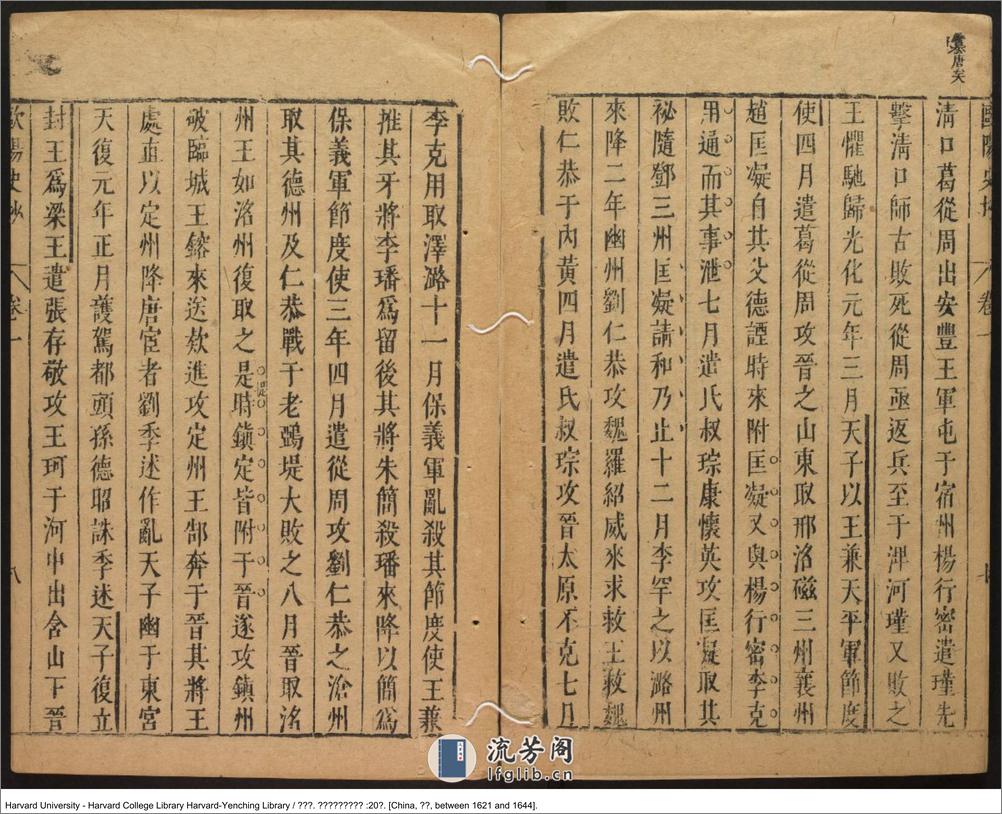 唐矣
清口葛從周出安豐王軍屯于宿州楊行密遣瑾先
擊清口師古敗死從周亟返兵至于渒河瑾又敗之
王懼馳歸光化元年三月天子以王兼天平軍節度
使四月遣葛從周攻晉之山東取邢洺磁三州襄州
趙匡凝自其父德諲時來附匡凝又與楊行密李克
用通而其事泄七月遣氏叔琮康懷英攻匡凝取其
祕隨鄧三州匡凝請和乃止十二月李罕之以潞州
來降二年幽州劉仁恭攻魏羅紹威來求救王救魏
敗仁恭于內黃四月遣氏叔琮攻晉太原不克七月
李克用取澤潞十一月保義軍亂殺其節度使王蕓
推其牙將李璠爲留後其將朱簡殺璠來降以簡爲
保義軍節度使三年四月遣從周攻劉仁恭之滄州
取其德州及仁恭戰于老鵶堤大敗之八月晉取洺
州王如洺州復取之是時鎮定皆附于晉遂攻鎮州
破臨城王鎔來送欵進攻定州王郜奔于晉其將王
處直以定州降唐宦者劉季述作亂天子幽于東宮
天復元年正月護駕都頭孫德昭誅季述天子復立
封王爲梁王遣張存敬攻王珂于河中出含山下晉
卷一
流芳阁
lfglib.cn
Harvard University - Harvard College Library Harvard-Yenching Library / ???. ????????? :20?. [China, ??, between 1621 and 1644].